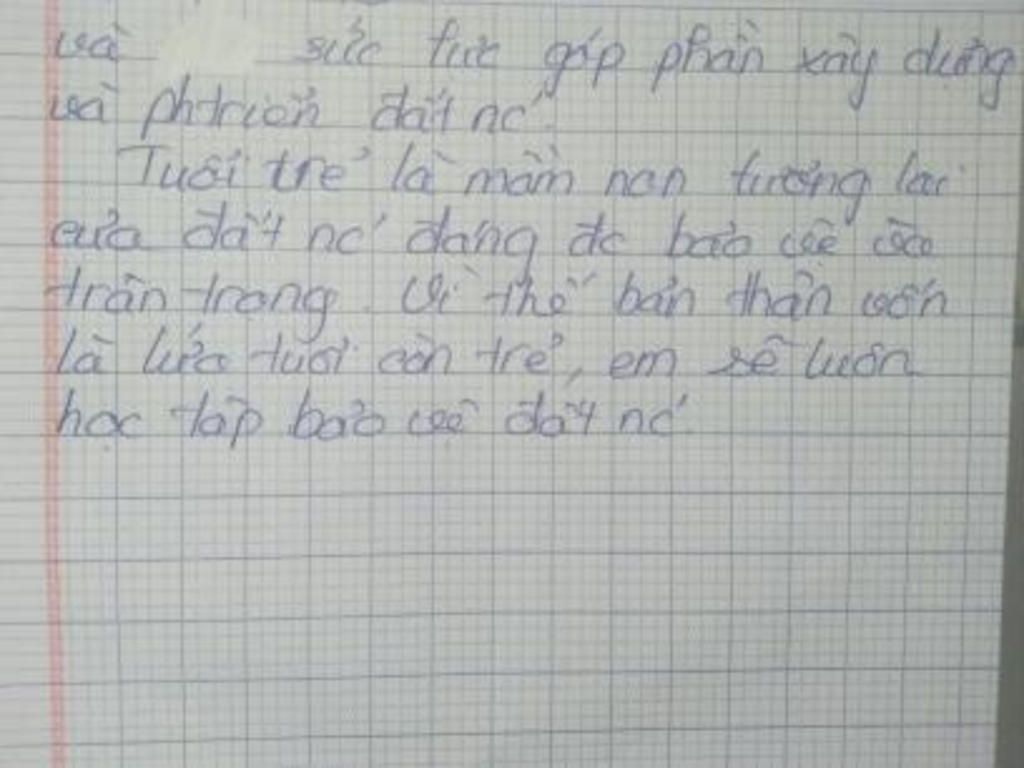 và sức lực góp phần xây dựng
và phtriển đất nc'.
Tuổi trẻ là mầm non tương lai
của đất nc' đang đc bảo vệ và
trân trọng. Vì thế bản thân vốn
là lứa tuổi còn trẻ, em sẽ luôn
học tập bảo vệ đất nc'